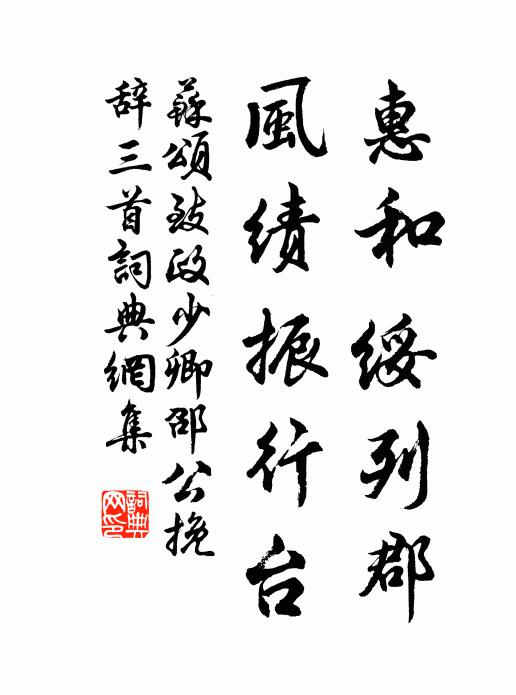 惠和綏列郡
風績振行台
蘇頌致政少卿邵公挽
辞三首詞典網集
詞典网印